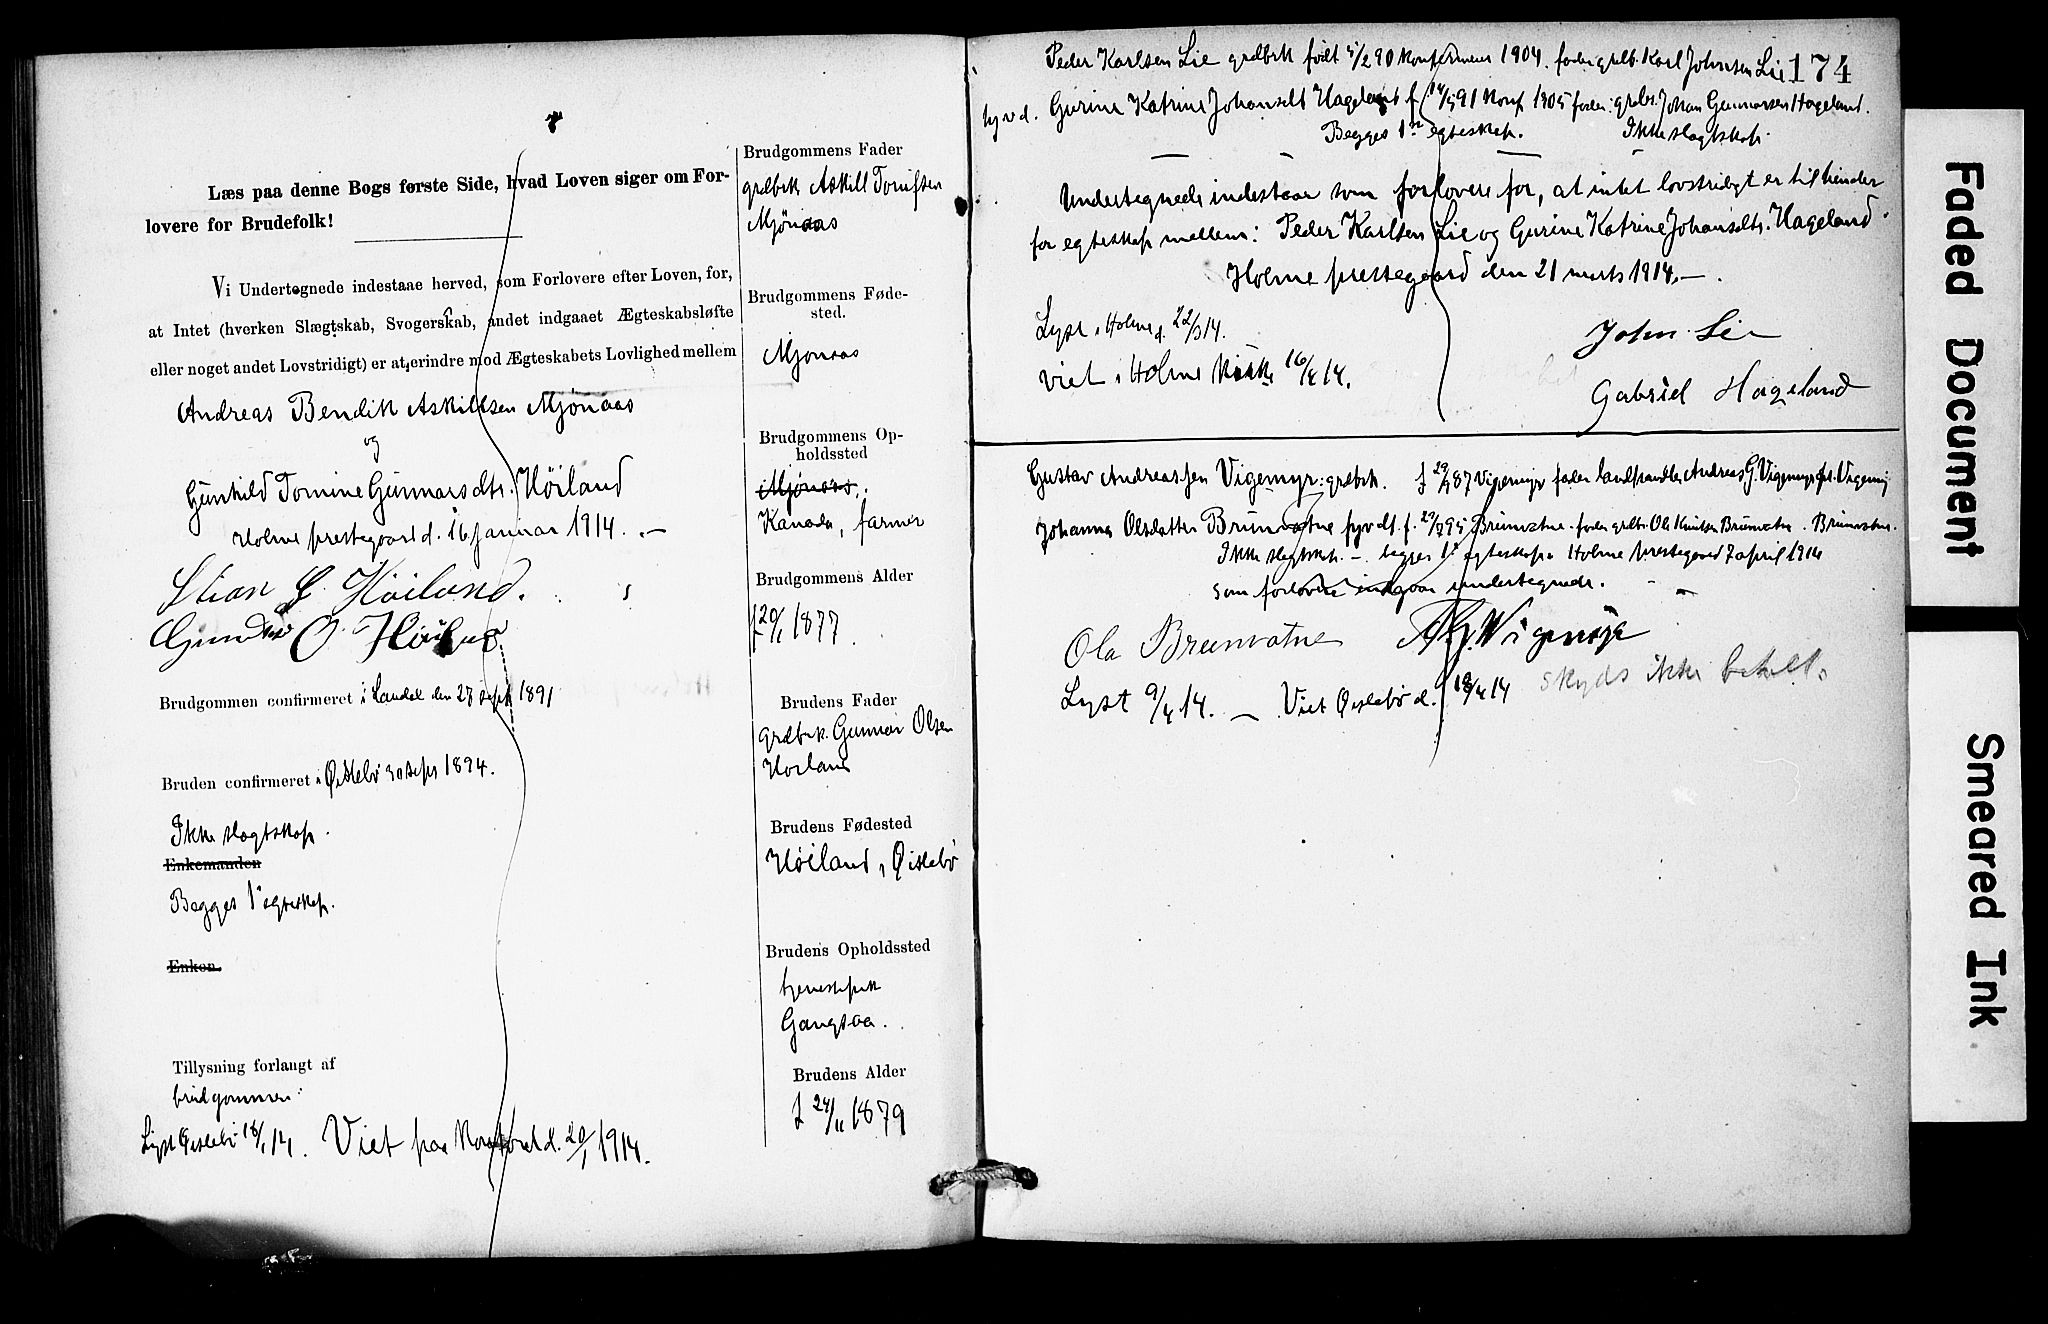 Læs paa denne Bogs første Side, hvad Loven siger om For-
lovere for Brudefolk!
Vi Undertegnede indestaae herved, som Forlovere efter Loven, for,
at Intet (hverken Slægtskab, Svogerskab, andet indgaaet Ægteskabsløfte
eller noget andet Lovstridigt) er at erindre mod Ægteskabets Lovlighed mellem
Andreas Bendik Askillsen Mjönaas
og
Gunhild Tomine Gunnarsdtr. Höiland
Holme prestegaard d. 16 januar 1914. —
Stian G. Höiland.
O. Höiland
Brudgommen confirmeret i Laudal den 27 sept 1891
Bruden confirmeret i Øislebö 30 sept 1894.
Ikke slægtskap.
Enkemanden
Begges 1ste egteskap.
Enken.
Tillysning forlangt af
brudgommen
Lyst Øislebö 18/1 14. Viet paa Kontoret d. 20/1 1914.
Brudgommens Fader
grdbrk Askill
Mjönaas
Brudgommens Føde-
sted.
Mjönaas
Brudgommens Op-
holdssted
Mjönaas
Kanada, farmer
Brudgommens Alder
f 20/1 1877
Brudens Fader
grdbrk. Gunnar Olsen
Höiland
Brudens Fødested
Höiland, Øislebö
Brudens Opholdssted
tjenestepik
Gangsaa.
Brudens Alder
f 24/11 1879
174
Peder Karlsen Lie grdbrk født /2 90 konfirmeret 1904. fader grdb. Karl Johnsen Lie
Gurine Katrine Johansdtr Hageland f 91 konf 1905 fader: grdbr. Johan Gunnarsen Hageland.
Begges 1ste egteskap. Ikke slægtskap.
Undertegnede indestaar som forlovere for, at intet lovstridigt er til hinder
for egteskap mellem: Peder Karlsen Lie og Gurine Katrine Johansdtr. Hageland
Holme prestegaard den 21 marts 1914. —
Lyst i Holme d. 22/3 14.
John Lie
viet i Holme kirke 16/4 14.
Gabriel Hageland
Gustav Andreassen Vigemyr grdbrk. f 87 Vigemyr fader landhandler Andreas G. Vigemyr
Johanna Olsdatter Brunvatne f. 95 Brunvatne fader grdbr. Ola Knutsen Brunvatne. Brunvatne.
Ikke slegtskap. — begges 1ste egteskap. Holme prestegaard 7 april 1914
som forlovere indgaar undertegnede.
Ola Brunvatne A. G. Vigemyr
Lyst 9/4 14. — Viet Øislebö d. 18/4 14
skyds ikke betalt.
Faded Document
Smeared Ink